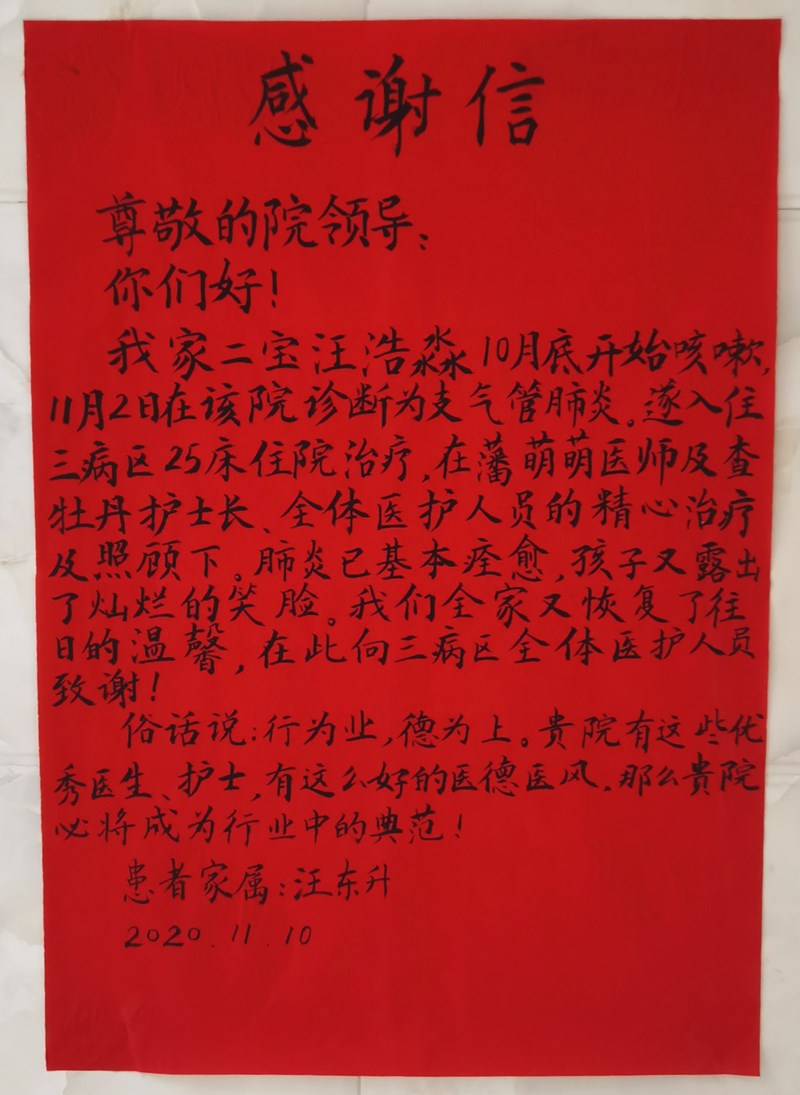 感谢信
尊敬的院领导:
你们好!
我家二宝汪浩淼10月底开始咳嗽,
11月2日在该院诊断为支气管肺炎。遂入住
三病区25床住院治疗,在藩萌萌医师及查
牡丹护士长、全体医护人员的精心治疗
及照顾下。肺炎已基本痊愈,孩子又露出
了灿烂的笑脸。我们全家又恢复了往
日的温馨,在此向三病区全体医护人员
致谢!
俗话说:行为业,德为上。贵院有这些优
秀医生、护士,有这么好的医德医风,那么贵院
必将成为行业中的典范!
患者家属:汪东升
2020.11.10